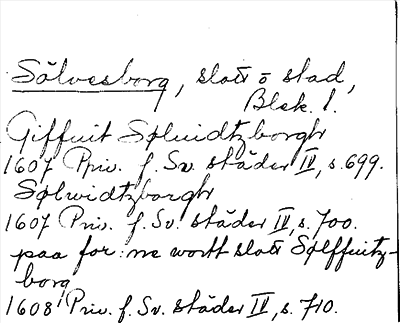 Sölvesborg, slott o stad,
Blek. l.
Giffuit Søluidtzborgh
1607 Priv. f. Sv. städer IV, s. 699.
Sølwidtzborgh
1607 Priv. f. Sv. städer IV, s. 700.
paa for:ne wortt slott Sølffuitz-
borg
1608 Priv. f. Sv. städer IV, s. 710.